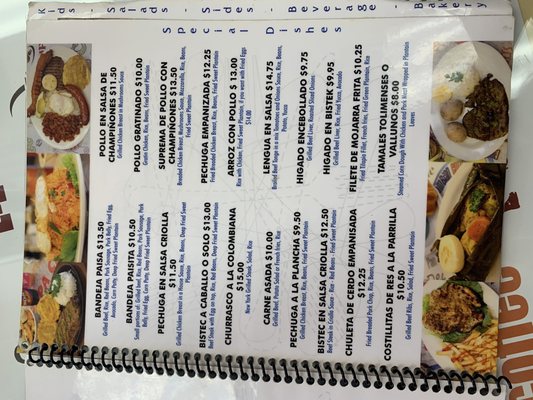 Kids - Salads - Specialties - Beverage - Bakery
BANDEJA PAISA $13.50
Grilled Beef, Rice, Red Beans, Pork Sausage, Pork Belly, Fried Egg,
Avocado, Corn Patty, Deep Fried Sweet Plantain
BANDEJA PAISITA $10.50
Small portion of: Grilled Beef, Rice, Red Beans, Pork Sausage, Pork
Belly, Fried Egg, Corn Patty, Deep Fried Sweet Plantain
PECHUGA EN SALSA CRIOLLA
$11.50
Grilled Chicken Breast in a House Sauce, Rice, Beans, Deep Fried Sweet
Plantain
BISTEC A CABALLO O SOLO $13.00
Beef Steak with Egg on top, Rice, Red Beans, Deep Fried Sweet Plantain
CHURRASCO A LA COLOMBIANA
$15.00
New York Grilled Steak, Salad, Rice
CARNE ASADA $10.00
Grilled Beef, Potato Salad or French Fries, Rice
PECHUGA A LA PLANCHA $9.50
Grilled Chicken Breast, Rice, Beans, Fried Sweet Plantain
BISTEC EN SALSA CRIOLLA $12.50
Beef Steak in Criolla Sauce - Rice - Red Beans - Fried Sweet Plantain
CHULETA DE CERDO EMPANISADA
$12.25
Fried Breaded Pork Chop, Rice, Beans, Fried Sweet Plantain
COSTILLITAS DE RES A LA PARRILLA
$10.50
Grilled Beef Ribs, Rice, Salad, Fried Sweet Plantain
POLLO EN SALSA DE
CHAMPIÑONES $11.50
Grilled Chicken Breast in Mushrooms Sauce
POLLO GRATINADO $10.00
Gratin Chicken, Rice, Beans, Fried Sweet Plantain
SUPREMA DE POLLO CON
CHAMPIÑONES $13.50
Breaded Chicken Breast, Mushrooms, Corn, Mozzarella, Rice, Beans,
Fried Sweet Plantain
PECHUGA EMPANIZADA $12.25
Breaded Chicken Breast, Rice, Beans, Fried Sweet Plantain
ARROZ CON POLLO $ 13.00
Rice with Chicken, Fried Sweet Plantain, if you want with Fried Eggs
$14.00
LENGUA EN SALSA $14.75
Boiled Beef Tongue in a mix Tomatoes and Onions Sauce, Rice, Beans,
Potato, Yuca
HIGADO ENCEBOLLADO $9.75
Grilled Beef Liver, Roasted Sliced Onions
HIGADO EN BISTEK $9.95
Grilled Beef Liver, Rice, Fried Yuca, Avocado
FILETE DE MOJARRA FRITA $10.25
Fried Tilapia Fillet, French Fries, Fried Green Plantain, Rice
TAMALES TOLIMENSES O
VALLUNOS $8.00
Steamed Corn Dough With Chicken and Pork Meat Wrapped in Plantain
Leaves